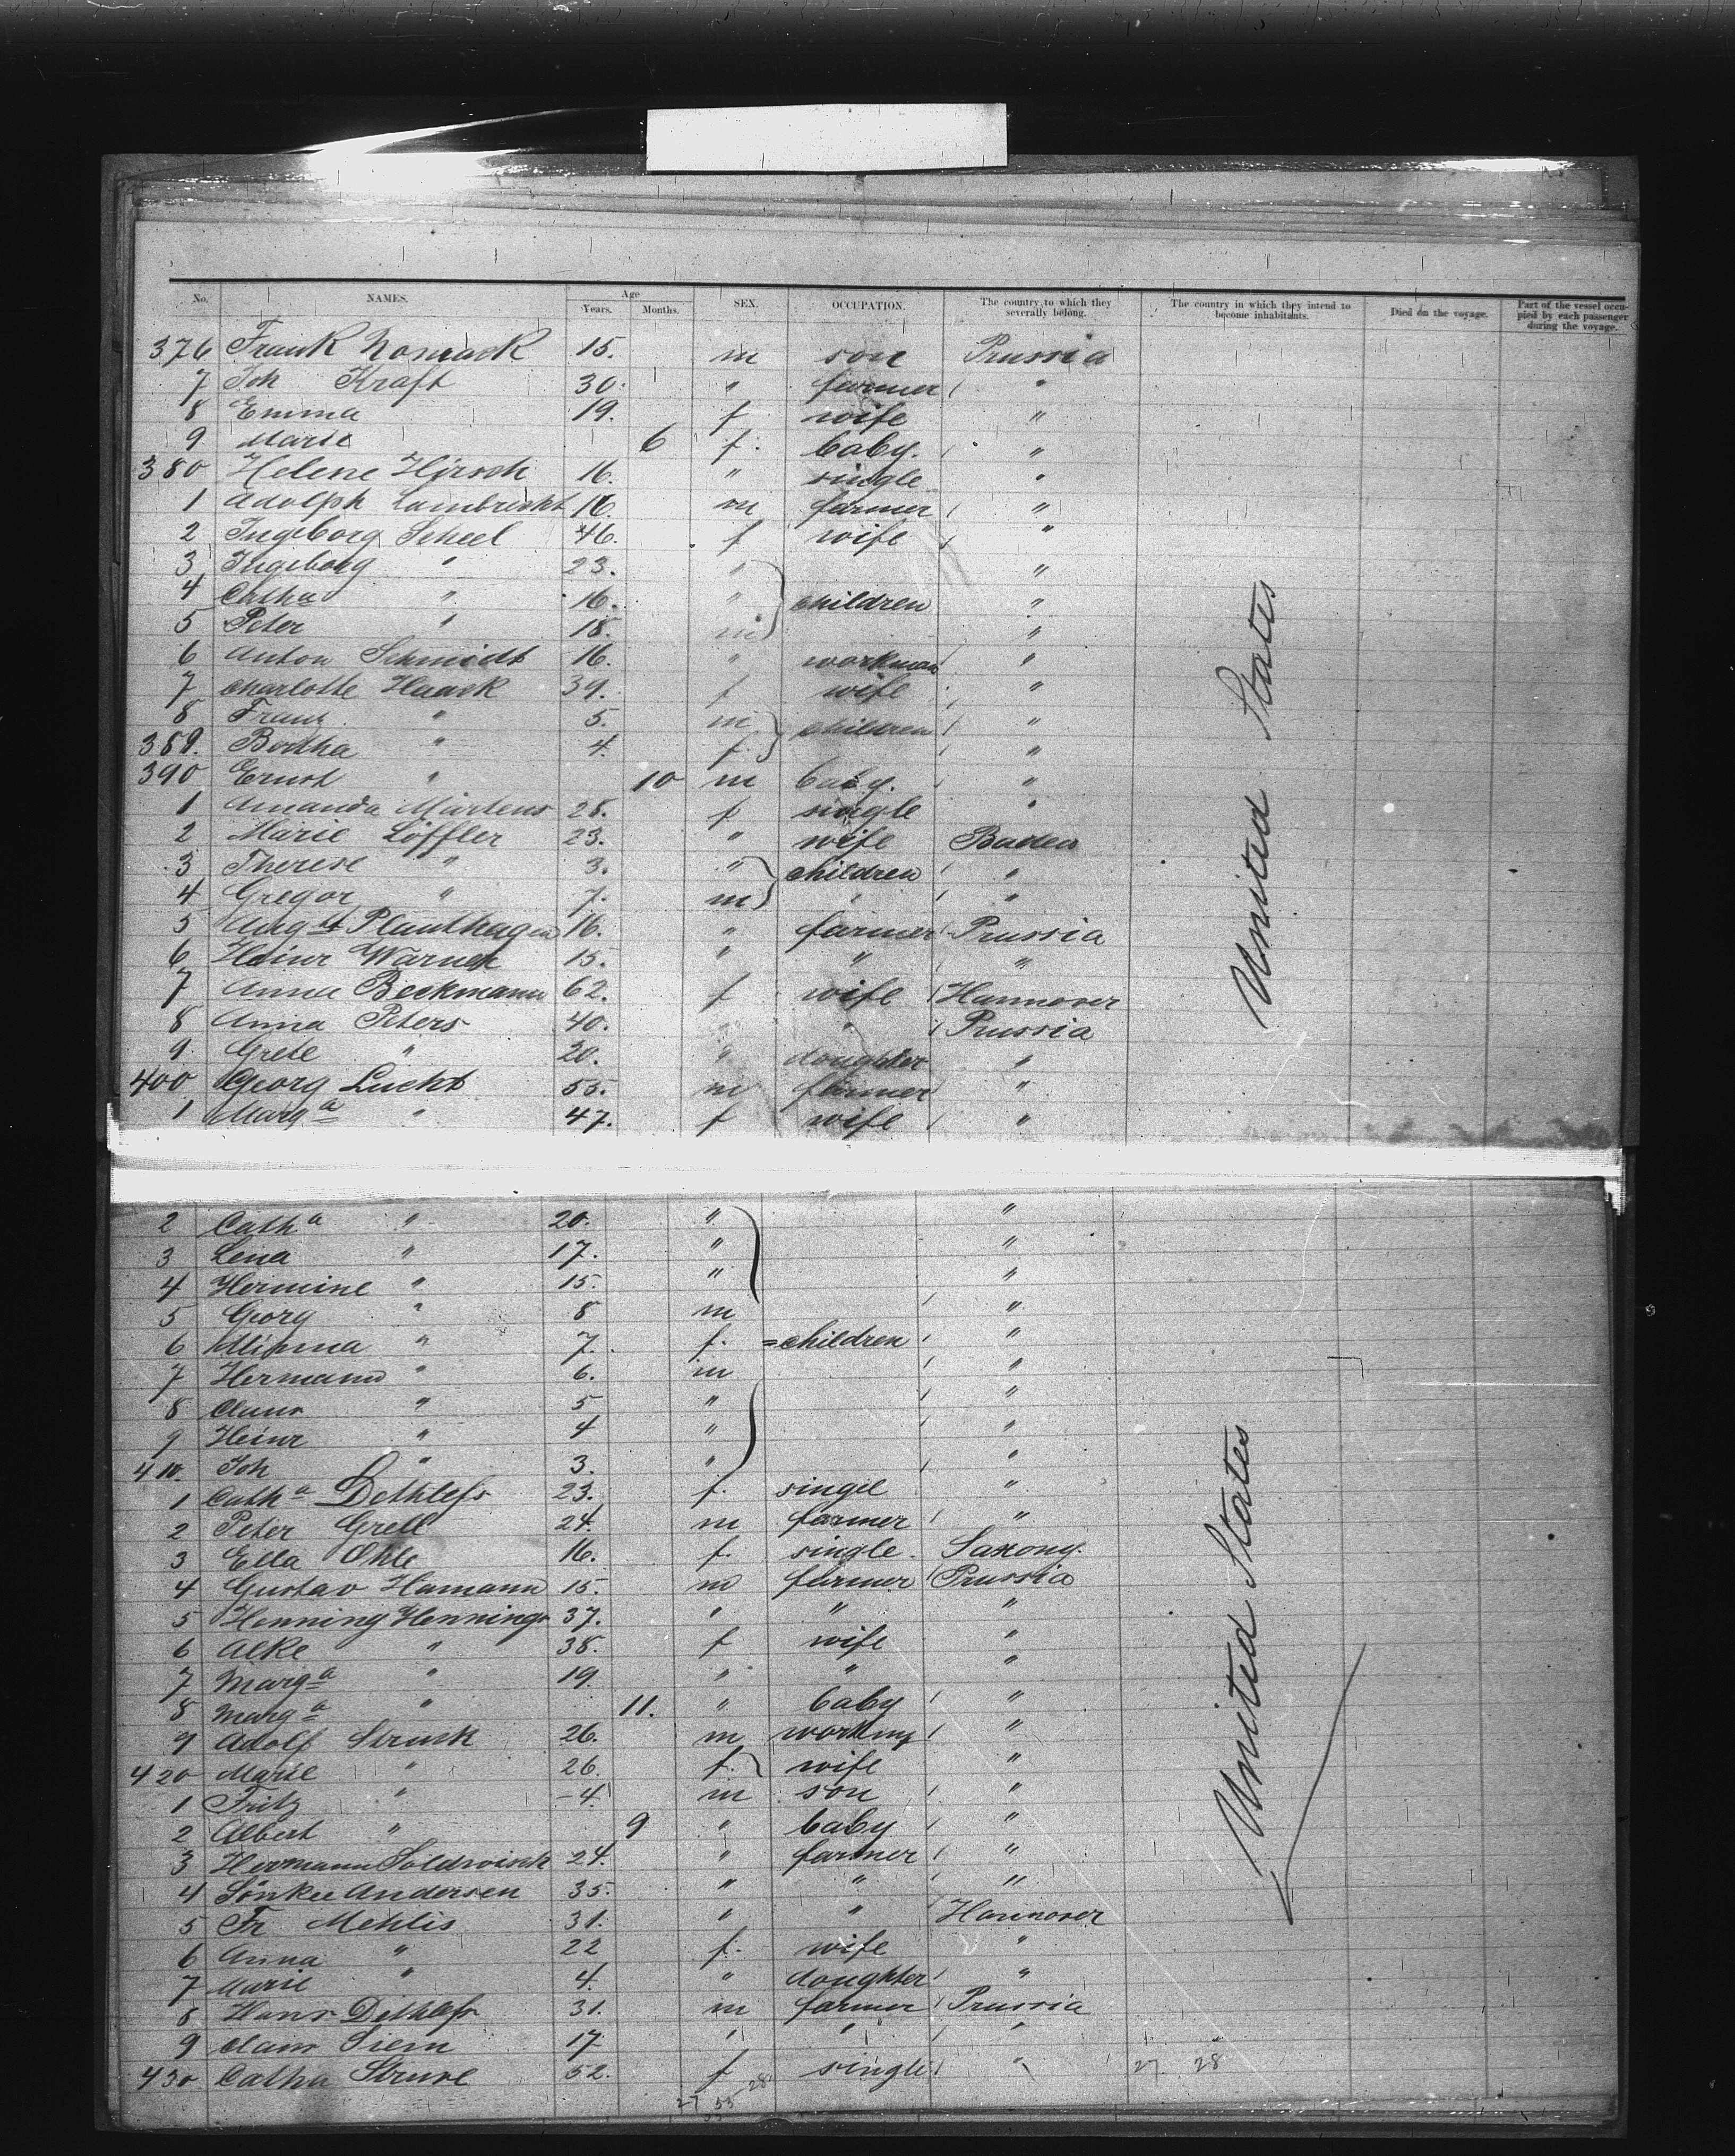 No. NAMES. Age Years. Months. SEX. OCCUPATION. The country to which they severally belong. The country in which they intend to become inhabitants. Died on the voyage. Part of the vessel occupied by each passenger during the voyage.
376 Frank 15. m son Prussia
7 Joh Kraft 30. " farmer "
8 Emma 19. f wife "
9 Marie 6 f. baby. "
380 Helene Hirsch 16. " single "
1 Adolph Lambrecht 16. m farmer "
2 Ingeborg Scheel 46. f wife "
3 Ingeborg " 23. " "
4 Catha " 16. " children "
5 Peter " 18. m "
6 Anton Schmidt 16. " workman "
7 Charlotte Haack 39. f wife "
8 Franz " 5. m children "
389. Bertha " 4. f. "
390 Ernst " 10 m baby. "
1 Amanda Martens 28. f single "
2 Marie Löffler 23. " wife Baden
3 Therese " 3. " children "
4 Gregor " 7. m " "
5 Augst Planthagen 16. " farmer Prussia
6 Heinr Warnek 15. " " "
7 Anna Beckmann 62. f wife Hannover
8 Anna Peters 40. " " Prussia
9. Grete " 20. " doughter "
400 Georg Lucht 55. m farmer "
1 Marga " 47. f wife "
United States
2 Catha " 20. " "
3 Lena " 17. " "
4 Hermine " 15. " "
5 Georg " 8 m "
6 Minna " 7. f. =children "
7 Hermann " 6. m "
8 Claus " 5 " "
9 Heinr " 4 " "
410. Joh " 3. " "
1 Catha Dethlefs 23. f. singel "
2 Peter Grell 24. m farmer "
3 Ella Ohle 16. f. single. Saxony.
4 Gustav Hamann 15. m farmer Prussia
5 Henning Hennings 37. " " "
6 Alke " 38. f wife "
7 Marga " 19. " " "
8 Marga " 11. " baby "
9 Adolf Struck 26. m working "
420 Marie " 26. f. wife "
1 Fritz " 4. m son "
2 Albert " 9 " baby "
3 Hermann Soldwisch 24. " farmer "
4 Sönke Andersen 35. " " "
5 Fr Mehlis 31. " " Hannover
6 Anna " 22 f. wife "
7 Marie " 4. " doughter "
8 Hans Dethlefs 31. m farmer Prussia
9 Claus Siem 17 " " "
430 Catha Struve 52. f single "
United States
27 28
27 55 28